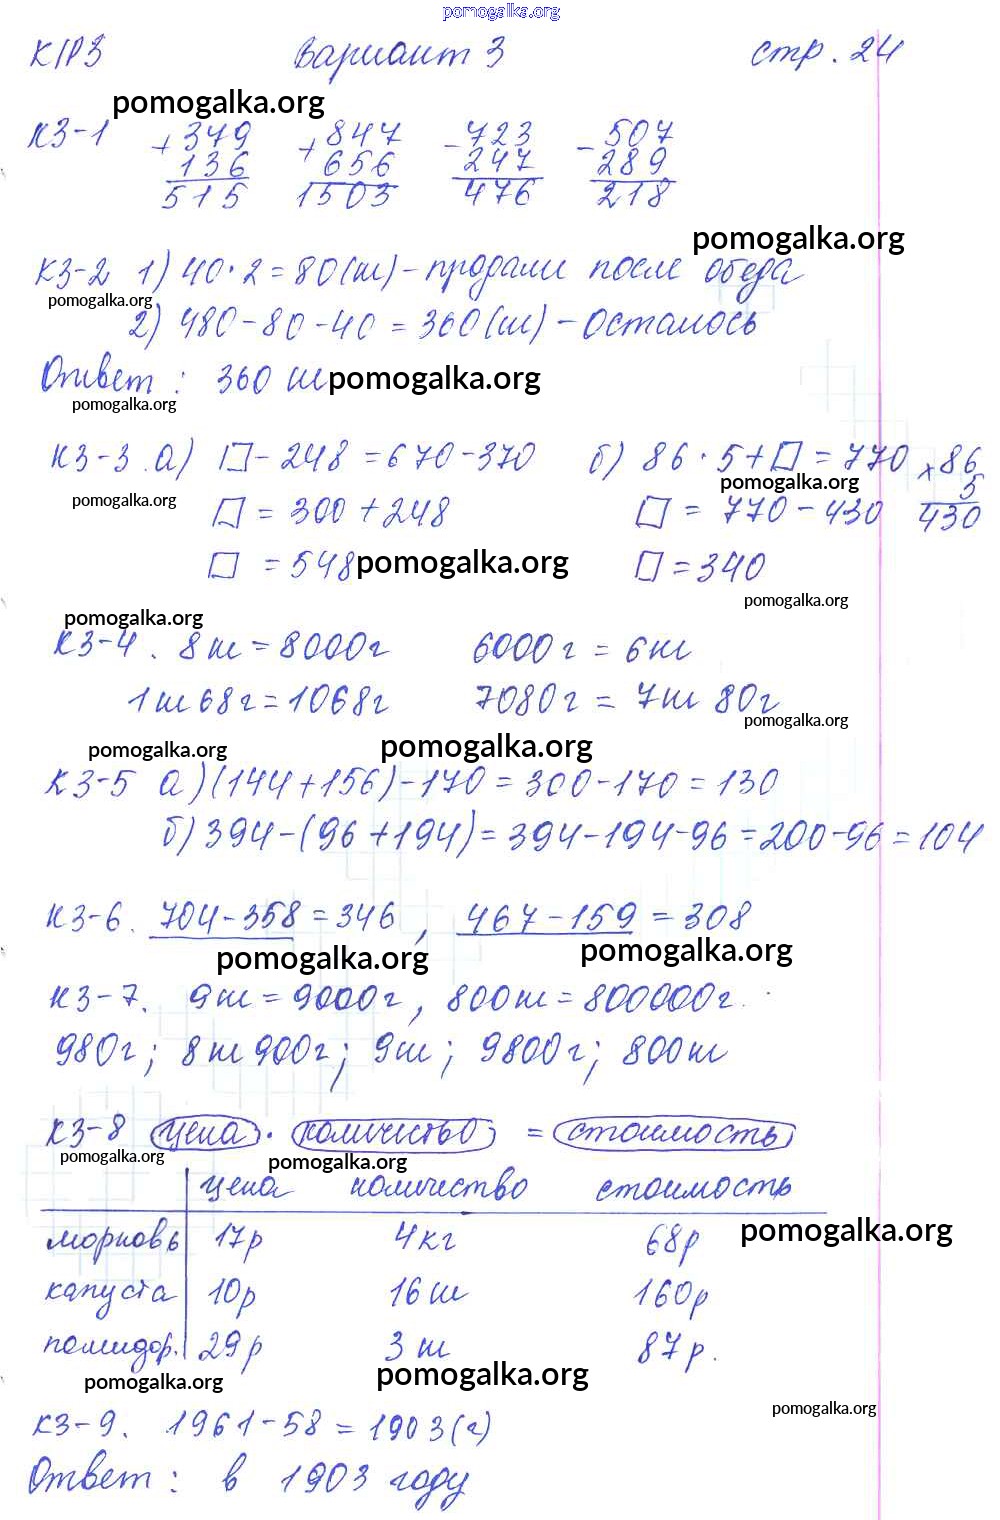 pomogalka.org
К/Р3 Вариант 3 стр. 24
pomogalka.org
К3-1 +379 +847 -723 -507
136 656 247 289
515 1503 476 218
pomogalka.org
К3-2 1) 40·2=80(ш) - продали после обеда
pomogalka.org
2) 480-80-40 = 360(ш) - осталось
Ответ: 360 ш pomogalka.org
pomogalka.org
К3-3. а) □-248=670-370 б) 86·5+□=770 ×86
pomogalka.org pomogalka.org 5
□ = 300+248 □ = 770-430 430
□ = 548 pomogalka.org □=340
pomogalka.org
pomogalka.org
К3-4. 8ш=8000г 6000г = 6ш
1ш68г=1068г 7080г = 7ш 80г
pomogalka.org
pomogalka.org pomogalka.org
К3-5 а)(144+156)-170=300-170=130
б)394-(96+194)=394-194-96=200-96=104
К3-6. 704-358=346, 467-159=308
pomogalka.org pomogalka.org
К3-7. 9ш=9000г, 800ш=800000г.
980г; 8ш900г; 9ш; 9800г; 800ш
К3-8 цена · количество = стоимость
pomogalka.org pomogalka.org
цена количество стоимость
морковь 17р 4кг 68р pomogalka.org
капуста 10р 16ш 160р
помидор. 29р 3ш 87р.
pomogalka.org pomogalka.org
pomogalka.org
К3-9. 1961-58=1903(г)
Ответ: в 1903 году